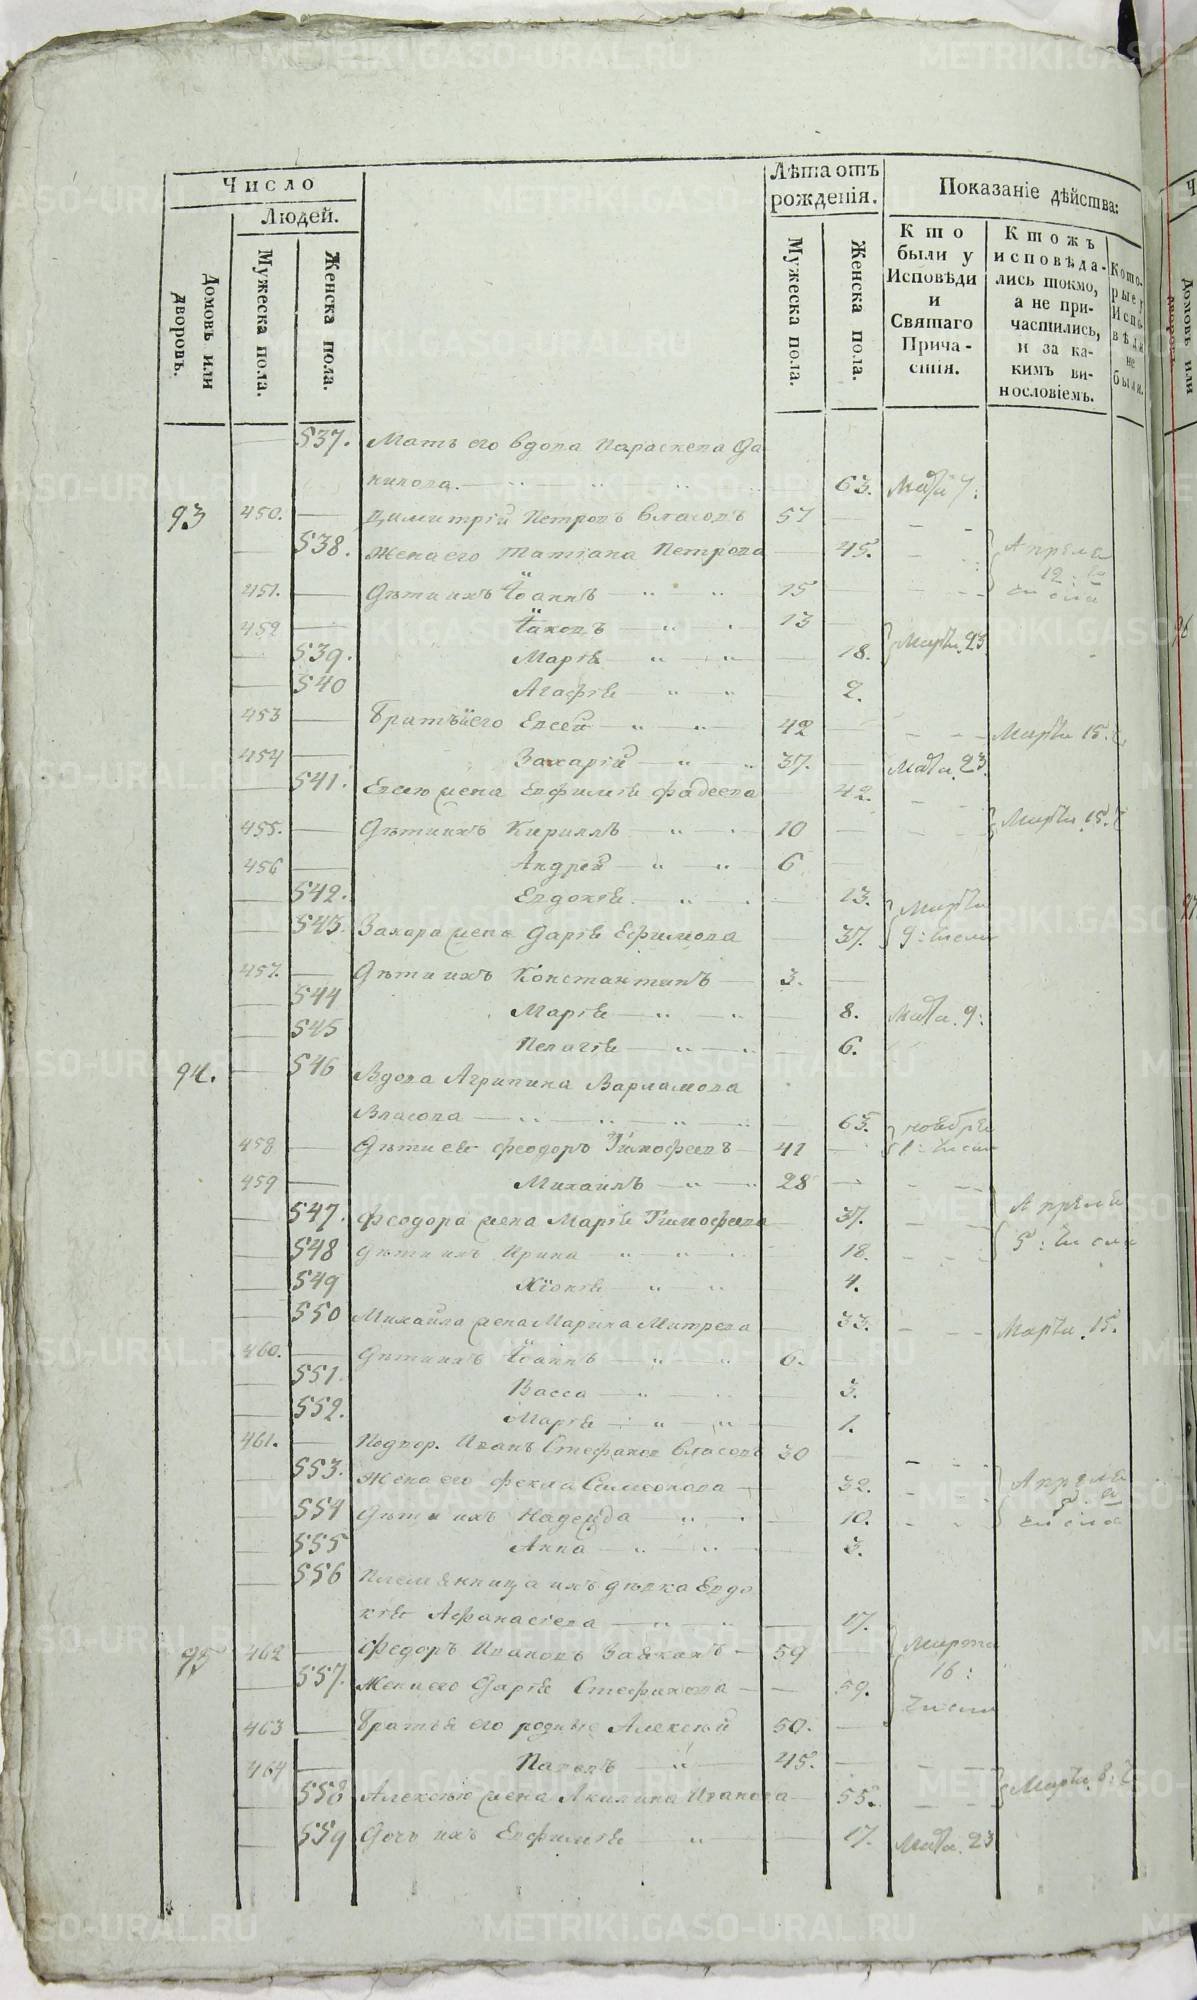 Число
Людей.
Домовъ или дворовъ.
Мужеска пола.
Женска пола.
Лѣта отъ рожденія.
Мужеска пола.
Женска пола.
Показаніе дѣйства:
Кто были у Исповѣди и Святаго Причастія.
Ктожъ исповѣдались токмо, а не причастились, и за какимъ винословіемъ.
Которые у Исповѣди не были.
537. Мать его вдова Параскева Да
нилова. 63. Марта 7:
93 450. Димитрій Петровъ Власовъ 57
538. Жена его Татіана Петрова 45. Апреля
451. Дѣти ихъ Іоаннъ 15 12: го числа
452 Іаковъ 13
539. Маріѣ 18. Марта. 23
540 Агафіѣ 2.
453 Братьѣ его Евсей 42 Марта 15.
454 Захарій 37. Марта. 23.
541. Евсею жена Евфиміѣ Фадеева 42.
455. Дѣти ихъ Кириллъ 10 Марта 15.
456 Андрей 6
542. Евдокіѣ 13. Марта
543. Захара жена Даріѣ Ефимова 37. 9: числа
457. Дѣти ихъ Константинъ 3.
544 Маріѣ 8. Марта. 9:
545 Пелагіѣ 6.
94. 546 Вдова Агрипина Варламова
Власова 65. ноебре
458 Дѣти еѣ Феодоръ Тимофеевъ 41 1: числа
459 Михаилъ 28
547. Феодора жена Маріѣ Тимофеева 37. Апреля
548 Дѣти ихъ Ирина 18. 5: числа
549 Хіоніѣ 4.
550 Михайла жена Марина Митрева 33. Марта. 15.
460. Дѣти ихъ Іоаннъ 6.
551. Васса 3.
552. Маріѣ 1.
461. Подвор. Иванъ Стефанов Власовъ 30
553. Жена его Фекла Симеонова 32. Апреля
554 Дѣти ихъ Надежда 10. числа
555 Анна 3.
556 Племѣнница ихъ дѣвка Евдо
кіѣ Афанасіева 17.
95 462 Федоръ Ивановъ Заѣкинъ 59 Марта
557. Жена его Даріѣ Стефанова 59. 16: числа
463 Братьѣ его родные Алексѣй 50.
464 Павелъ 45.
558 Алексѣю жена Акилина Иванова 55. Марта 8:
559 Дочь ихъ Евфиміѣ 17. Марта. 23
METRIKI.GASO-URAL.RU